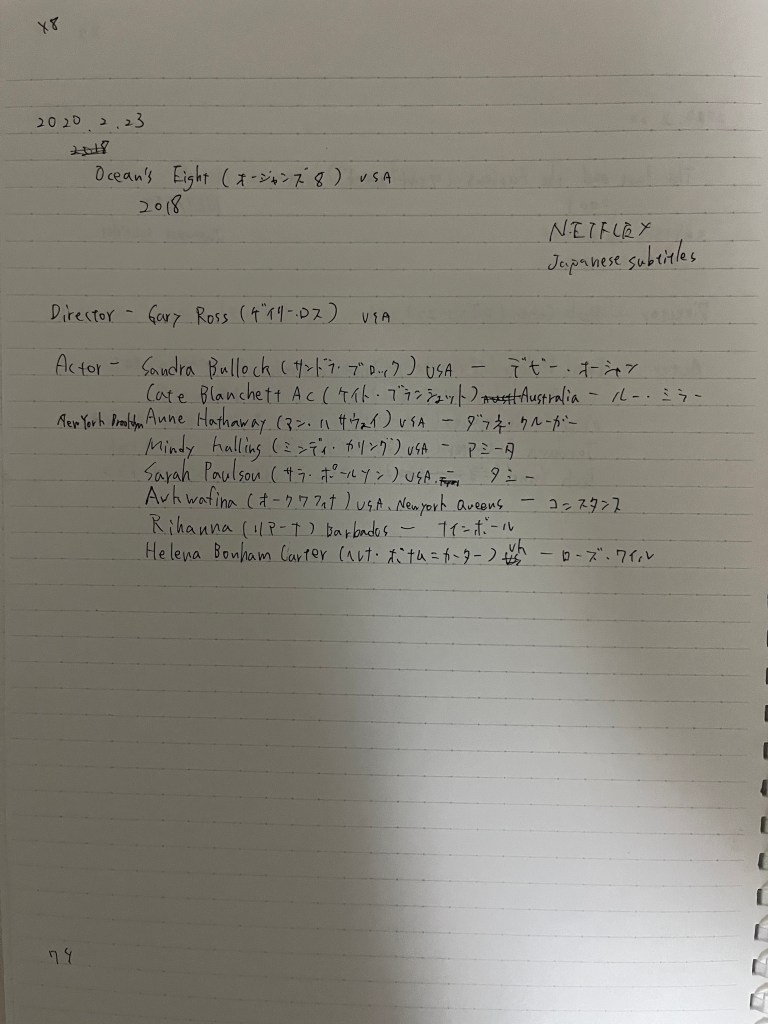 x8
2020.2.23
Ocean's Eight (オージャンズ8) USA
2018
NETFLEX
Japanese subtitles
Director - Gary Ross (ゲイリー・ロス) USA
Actor - Sandra Bullock (サンドラ・ブロック) USA - デビー・オーシャン
Cate Blanchett Ac (ケイト・ブランシェット) Australia - ルー・ミラー
New York Brooklyn Anne Hathaway (アン・ハサウェイ) USA - ダフネ・クルーガー
Mindy kalling (ミンディ・カリング) USA - アミータ
Sarah Paulson (サラ・ポールソン) USA. - タミー
Awkwafina (オークワフィナ) USA. Newyork queens - コンスタンス
Rihanna (リアーナ) Barbados - ナインボール
Helena Bonham Carter (ヘレナ・ボナム=カーター) Uk - ローズ・ワイル
74